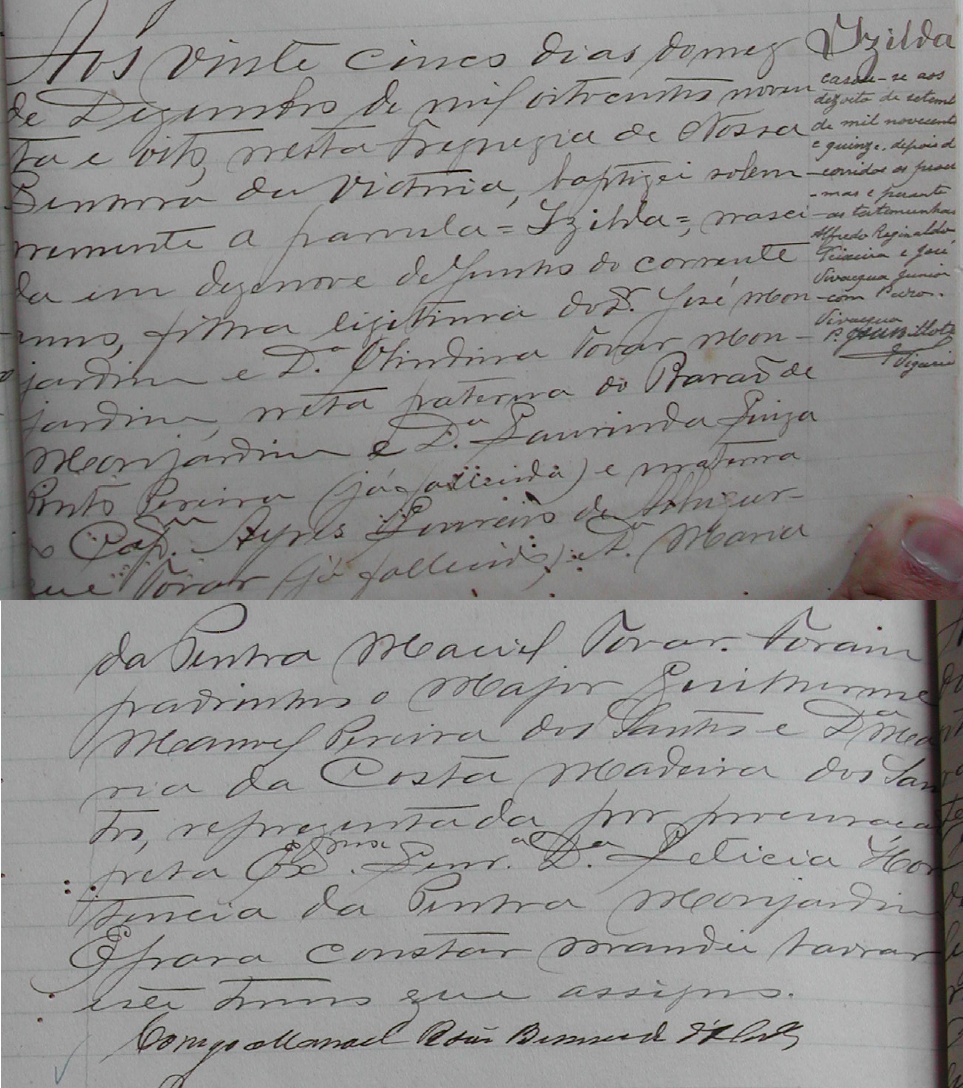 Aos vinte cinco dias do mez
de Dezembro de mil oitocentos noven
ta e oito, nesta Freguezia de Nossa
Senhora da Victoria, baptizei solem-
nemente a parvula = Izilda =, nasci-
da em dezenove de Junho do corrente
anno, filha legitima do Dr. José Mon-
jardim e D.ª Olindina Tovar Mon-
jardim, neta paterna do Barão de
Monjardim e D.ª Laurinda Luiza
Pinto Pereira (já fallecida) e materna
Cap.m Ayres Loureiro de Albuquer-
que Tovar (já fallecido) e D. Maria
da Penha Maciel Tovar. Foram
padrinhos o Major Guilherme
Manoel Pereira dos Santos e D.ª Ma
ria da Costa Madeira dos San
tos, reprezentada por procuraça
pela Ex.ma Senr.ª D.ª Leticia Hor
tencia da Penha Monjardim
E para constar mandei lavrar
este termo que assigno.
Conego Manoel
Izilda
casou-se aos
dezoito de setemb
de mil novecent
e quinze, depois d
corridos os procl
-mas e perante
-as testemunhas
Alfredo Reginaldo
Teixeira e José
Vivacqua Junior
com Pedro
Vivacqua
P.
Vigario